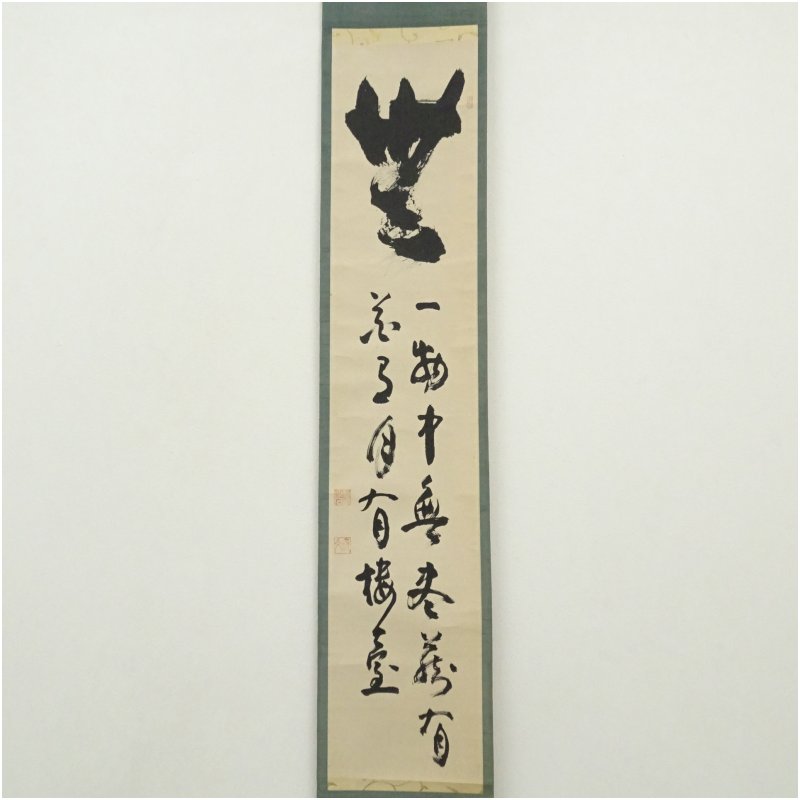 無
一物中無尽蔵有
花有月有楼臺